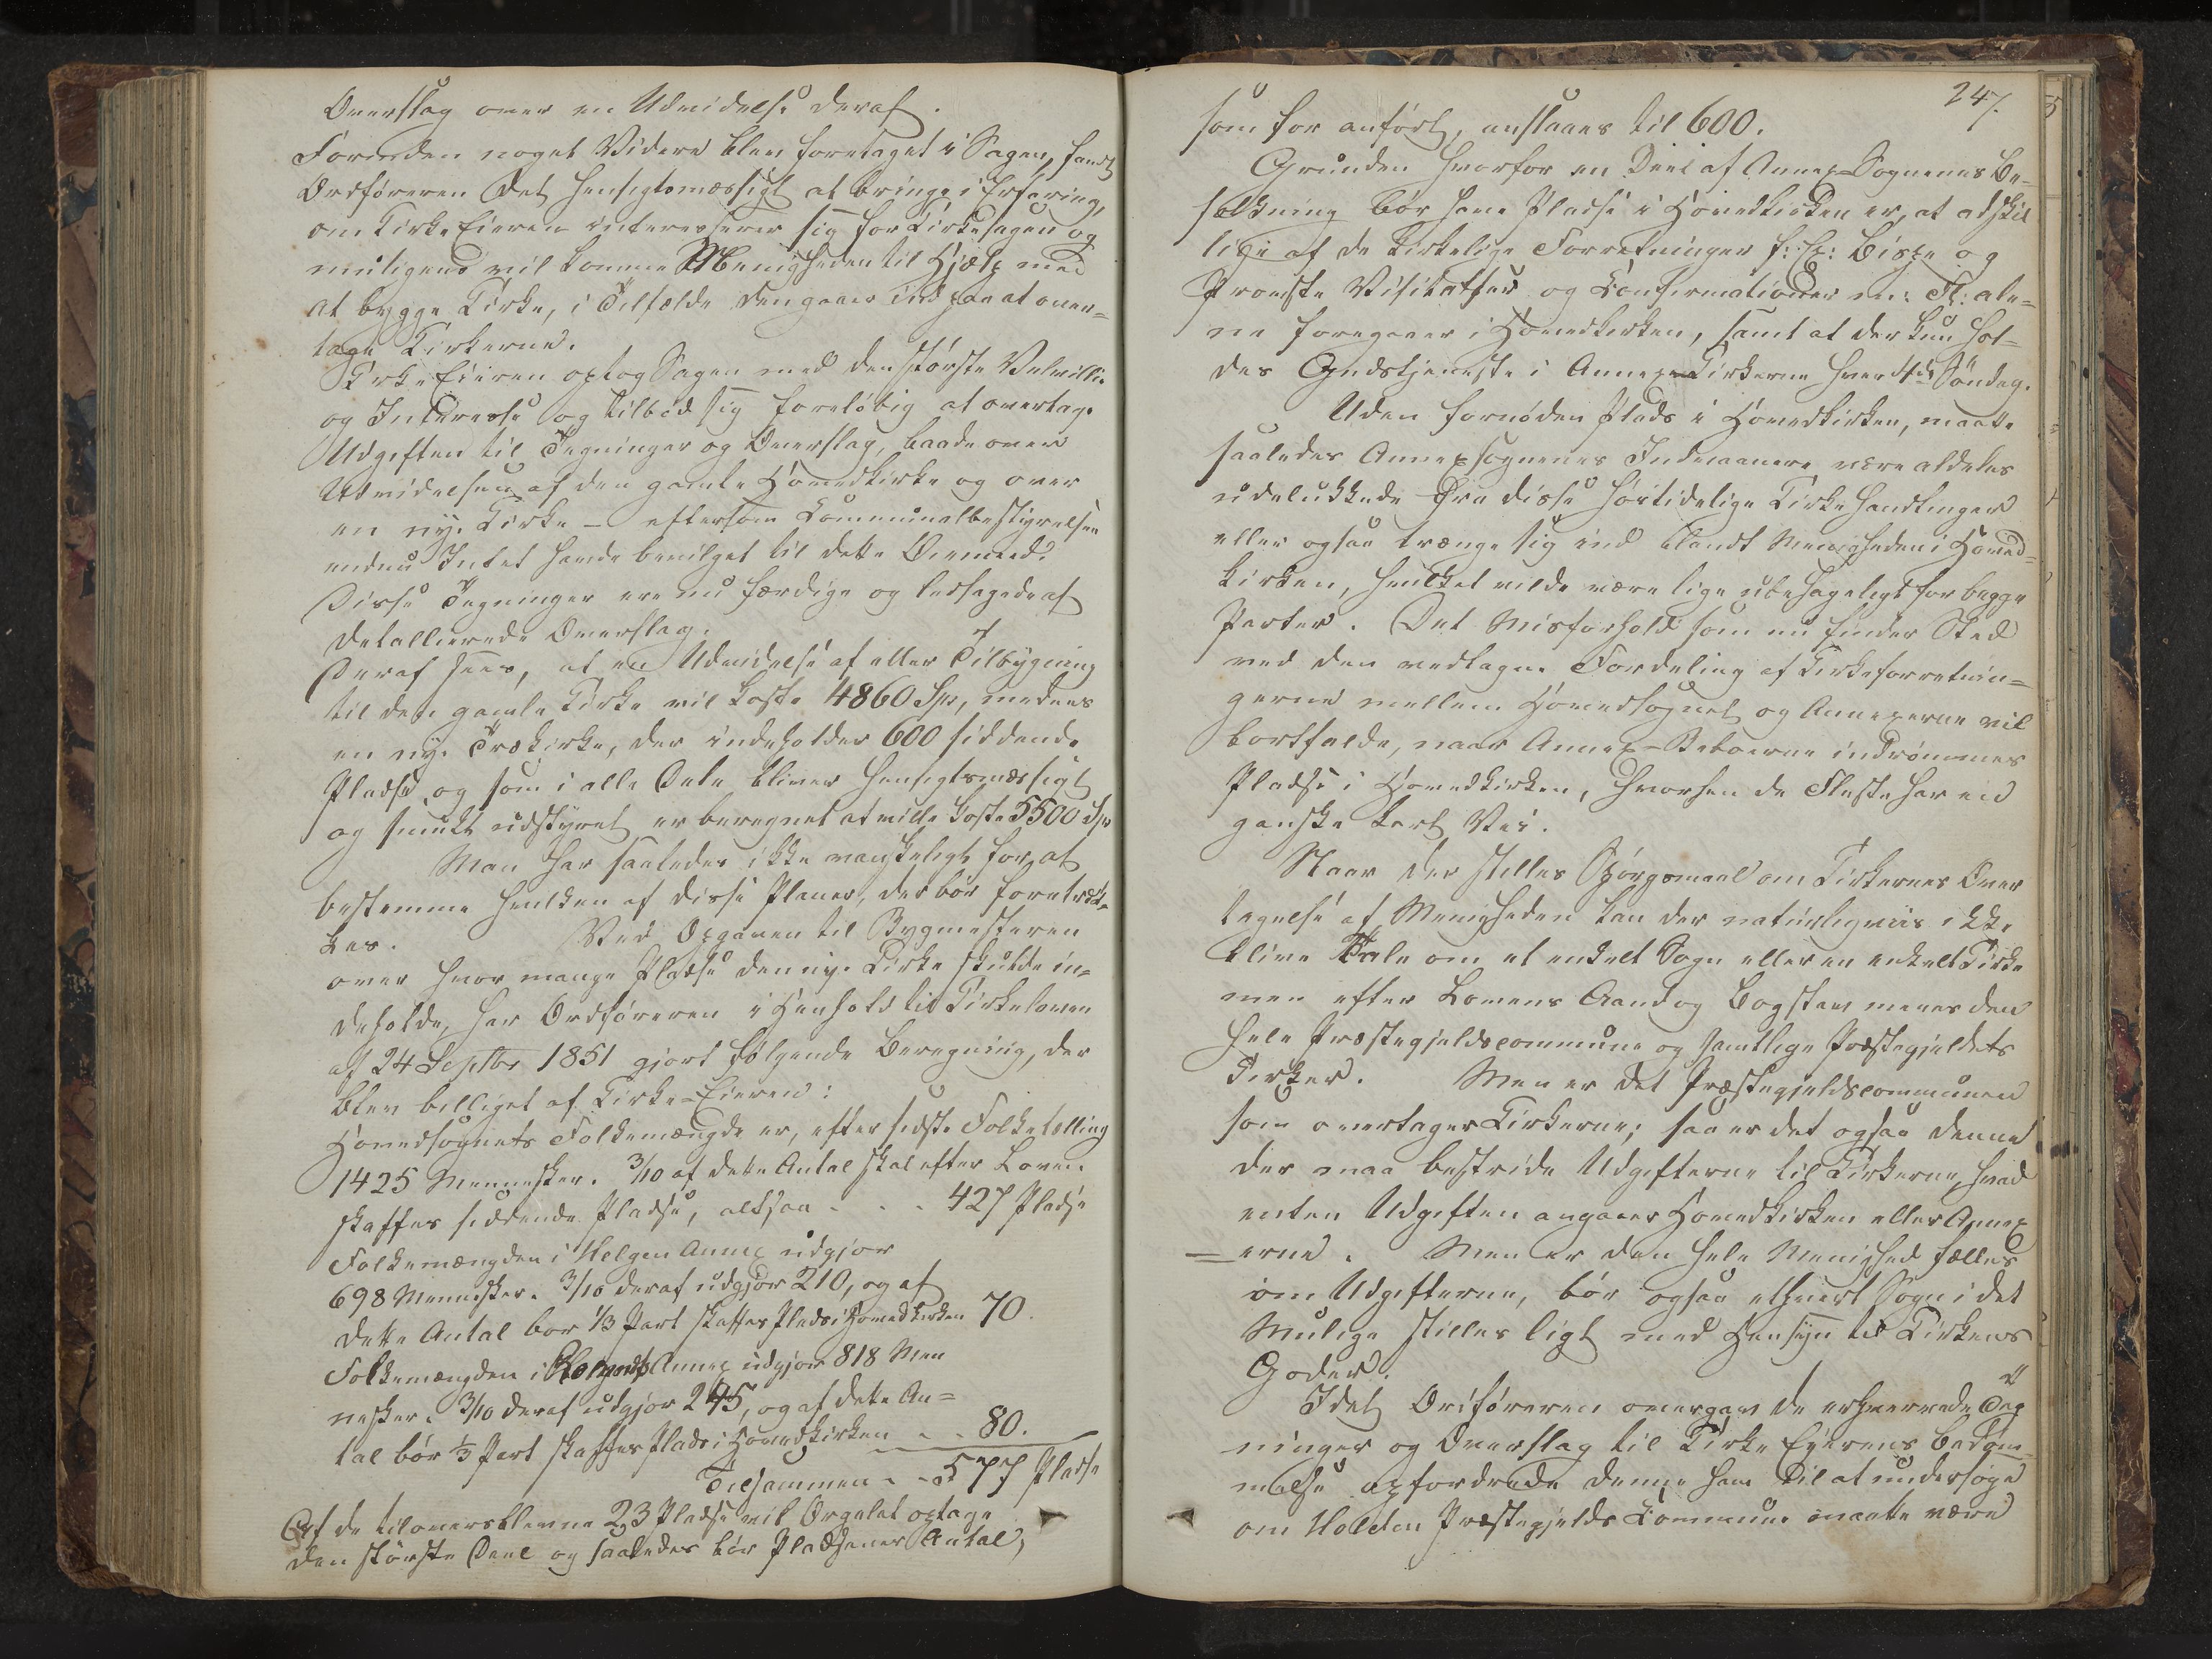 Overslag over en Udvidelse deraf.
Forinden noget Videre blev foretaget i Sagen, fandt
Ordføreren det hensigtsmæssigt at bringe i Erfaring,
om Kirke Eieren interesserer sig for Kirkesagen og
muligens vil komme Menigheden til Hjælp med
at bygge Kirke, i Tilfælde den gaaer ind paa at over-
tage Kirkerne.
Kirke Eieren optog Sagen med den største Velvillie
og Interesse og tilbød sig foreløbig at overtage
Udgiften til Tegninger og Overslag, baade over
Udvidelsen af den gamle Hovedkirke og over
en ny Kirke - eftersom Communalbestyrelsen
endnu Intet havde bevilget til dette Øiemed.
Disse Tegninger ere nu færdige og ledsagede af
detallierede Overslag.
Deraf sees, at en Udvidelse af eller Tilbygning
til den gamle Kirke vil koste 4860 Spd, medens
en ny Trækirke, der indeholder 600 siddende
Pladse og som i alle Dele bliver hensigtsmæssigt
og smukt udstyret er beregnet at ville koste 5500 Spd
Man har saaledes ikke vanskeligt for at
bestemme hvilken af disse Planer, der bør foretræk-
kes. Ved Opgaven til Bygmesteren
over hvor mange Pladse den nye Kirke skulde in-
deholde, har Ordføreren i Henhold til Kirkeloven
af 24 Septbr 1851 gjort følgende Beregning, der
blev billiget af Kirke-Eieren:
Hovedsognets Folkemængde er, efter sidste Folketælling
1425 Mennesker. 3/10 af dette Antal skal efter Loven
skaffes siddende Pladse, altsaa - - - 427 Pladse
Folkemængden i Helgen Annex udgjør
698 Mennesker. 3/10 deraf udgjør 210, og af
dette Antal bør 1/3 Part skaffes Plads i Hovedkirken 70.
Folkemængden i Annex udgjør 818 Men
nesker. 3/10 deraf udgjør 245, og af dette An-
tal bør 1/3 Part skaffes Plads i Hovedkirken - - 80.
Tilsammen - - 577 Pladse
Af de tiloversblevne 23 Pladse vil Orgelet optage
den største Deel og saaledes bør Pladsenes Antal,
247.
som før anført, anslaaes til 600.
Grunden hvorfor en Deel af Annex-Sognenes Be-
folkning bør have Pladse i Hovedkirken er, at adskil
lige af de kirkelige Forretninger f: Ex: Bispe og
Provste Visitatser og Confirmationer m: Fl: ale-
ne foregaaer i Hovedkirken, samt at der kun hol-
des Gudstjeneste i Annex-Kirkerne hver 4de Søndag.
Uden fornøden Plads i Hovedkirken, maatte
saaledes Annexsognenes Indvaanere være aldeles
udelukkede fra disse høitidelige Kirkehandlinger
eller ogsaa trænge sig ind blandt Menigheden i Hoved-
kirken, hvilket vilde være lige ubehageligt for begge
Parter. Det Misforhold som nu finder Sted
ved den vedtagne Fordeling af Kirkeforretnin-
gerne mellem Hovedsognet og Annexerne vil
bortfalde, naar Annex-Beboerne indrømmes
Pladse i Hovedkirken, hvorhen de Fleste har en
ganske kort Vei.
Naar der stilles Spørgsmaal om Kirkernes Over
tagelse af Menigheden kan der naturligviis ikke
blive Tale om et enkelt Sogn eller en enkelt Kirke
men efter Lovens Aand og Bogstav menes den
hele Præstegjeldscommune og samtlige Præstegjeldets
Kirker. Men er det Præstegjeldscommunen
som overtager Kirkerne; saa er det ogsaa denne
der maa bestride Udgifterne til Kirkerne, hvad
enten Udgiften angaaer Hovedkirken eller Annex
=erne. Men er den hele Menighed fælles
om Udgifterne, bør ogsaa ethvert Sogn i det
Mulige stilles ligt med Hensyn til Kirkens
Goder.
Idet Ordføreren overgav de erhvervede Teg
ninger og Overslag til Kirke Eierens Bedøm-
melse opfordrede denne ham til at undersøge
om Holden Præstegjelds Commune maatte være